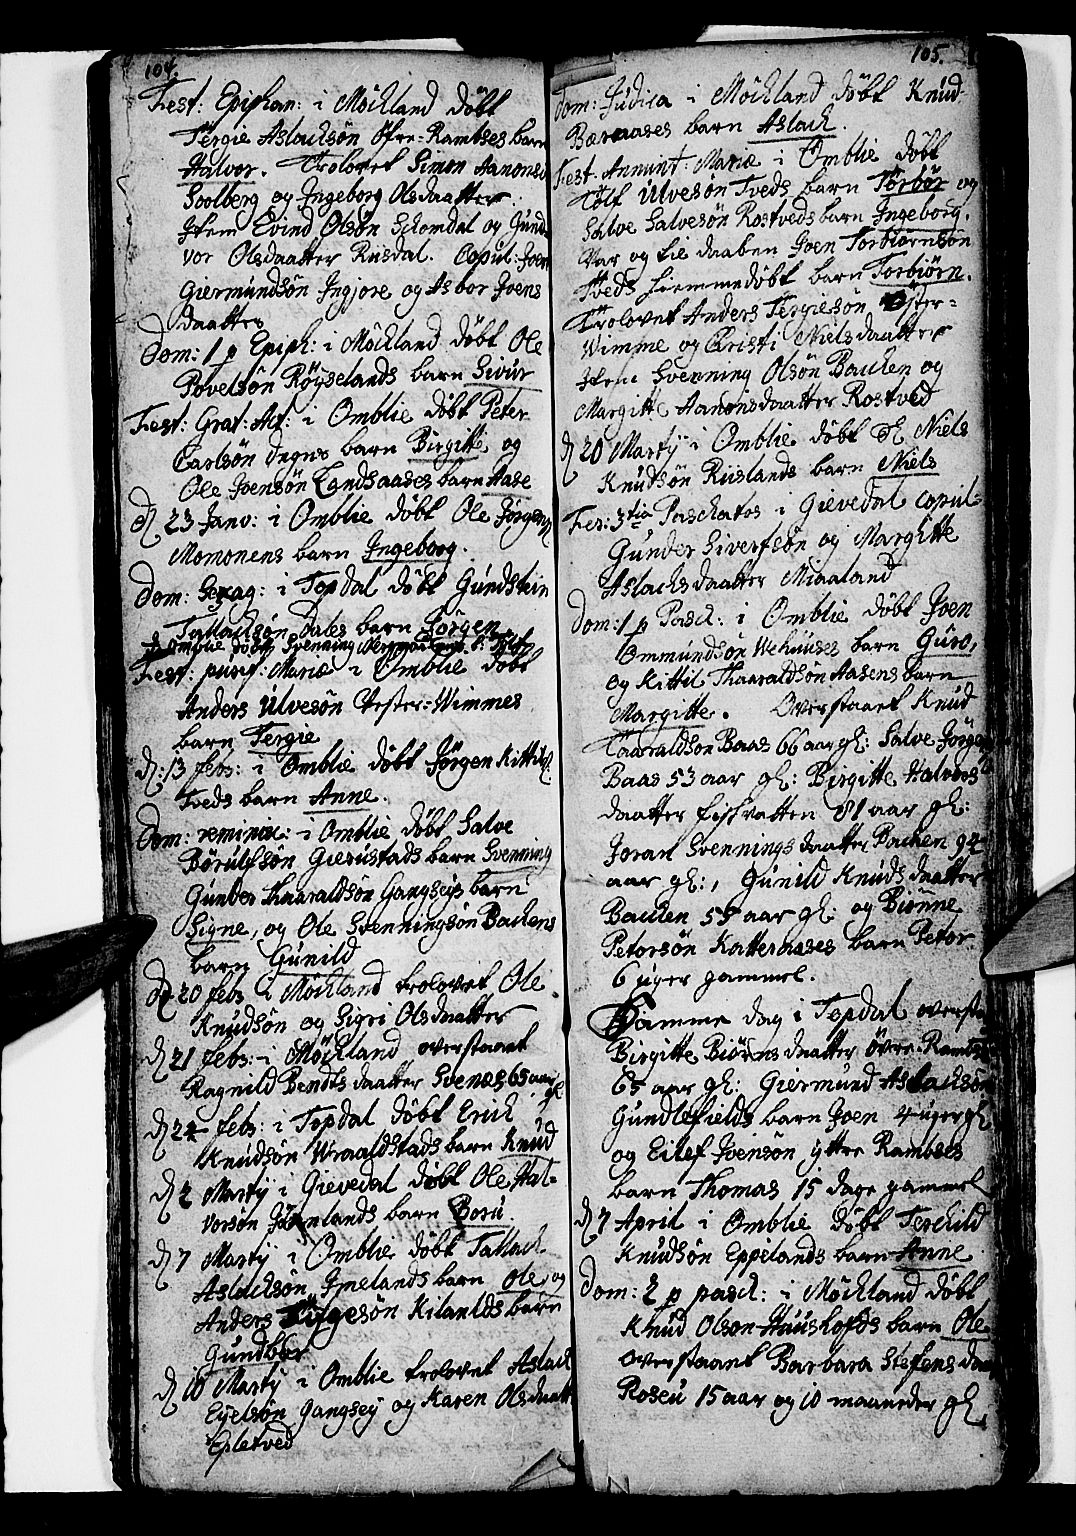 104.
Fest: Epiphan: i Möckland döbt
Tergie Aslachsön Öfre-Ramses barn
Halvor. Trolovet Simon Aanons:
Soolberg og Ingeborg Olsdaatter.
Item Evind Olsön Skomdal og Gund
vor Olsdaatter Risdal. Copul: Joen
Giermundsön Ingjore og Asbor Joens
daatter
Dom: 1 p Epiph: i Möckland döbt Ole
Povelsön Röyselands barn Sivur
Fest: Grat: Act: i Omblie döbt Peter
Carlsön Degns barn Birgitte, og
Ole Joensön Landsaases barn Aase
d 23 Janv: i Omblie döbt Ole Jörgens
Momonens barn Ingeborg.
Dom: Sexag: i Topdal döbt Gundstein
Tallachsön Dales barn Jörgen
i Omblie döbt Svenning
Fest: purif: Mariæ i Omblie döbt
Anders Ulvesön Vester-Wimmes
barn Tergie
d: 13 febr: i Omblie döbt Jörgen Kittils
Tveds barn Anne.
Dom: reminisc: i Omblie döbt Salve
Börulfsön Gierustads barn Svenning
Gunder Thaaraldsön Gangseys barn
Signe, og Ole Svenningsön Backens
barn Gunild
d 20 febr i Möckland trolovet Ole
Knudsön og Sigri Olsdaatter
d 21 febr: i Möckland overstaaet
Ragnild Bendtsdaatter Svenas 65 aar gl
d 24 febr: i Topdal döbt Erich
Knudsön Wraaldstads barn Knud
d 2 Martij i Gievedal döbt Ole Hal-
vorsön Jörnlands barn Boru.
d 7 Martij i Omblie döbt Tallach
Aslachsön Ipnelands barn Ole, og
Anders Kilands barn
Gundbor
d 10 Martij i Omblie trolovet Aslach
Eyelsön Gangsey og Karen Olsdaatt
Epletved
105.
Dom: Judica i Möckland döbt Knud
Bæraases barn Aslach.
Fest. Annunt: Mariæ i Omblie döbt
Tolf Ulvesön Tveds barn Törbör og
Salve Salvesön Rostveds barn Ingeborg.
Var og til daaben Joen Torbiornsön
Tveds hiemmedöbt barn Torbiörn.
Trolovet Anders Tergiesön Öster-
Wimme og Christi Nielsdaatter
Item Svenning Olsön Backen og
Margitte Aanonsdaatter Rostved
d 20 Martij i Omblie döbt Niels
Knudsön Rislands barn Niels
Fer: 3tia Paschatos i Gievedal copul-
Gunder Sivertsön og Marghitte
Aslachsdaatter Miaaland
Dom: 1 p Pasch: i Omblie döbt Joen
Ommundsön Wehuuses barn Guro,
og Kittil Thaaraldsön Aasens barn
Margitte. Overstaaet Knud
Taaraldsön Baas 66 aar gl: Salve Jörgens
Baas 53 aar gl: Birgitte Halvors
daatter Fiskvatten 81 aar gl:
Joran Svenningsdaatter Backen 94
aar gl:, Gunild Knudsdaatter
Backen 55 aar gl: og Biönne
Petersön Katteraases barn Peter
6 uger gammel.
Samme dag i Topdal oversta
Birgitte Biörnsdaatter Övre-Ramses
65 aar gl: Giermund Aslachsön
Gundlefields barn Joen 4 uger gl
og Eilef Joensön Yttre Ramses
barn Thomas 15 dage gammel
d 7 April i Omblie döbt Terchild
Knudsön Eppelands barn Anne
Dom: 2 p pasch: i Möckland döbt
Knud Olson Haushofds barn Ole
overstaaet Barbara Stefensdaa
Roseu 15 aar og 10 maaneder gl.